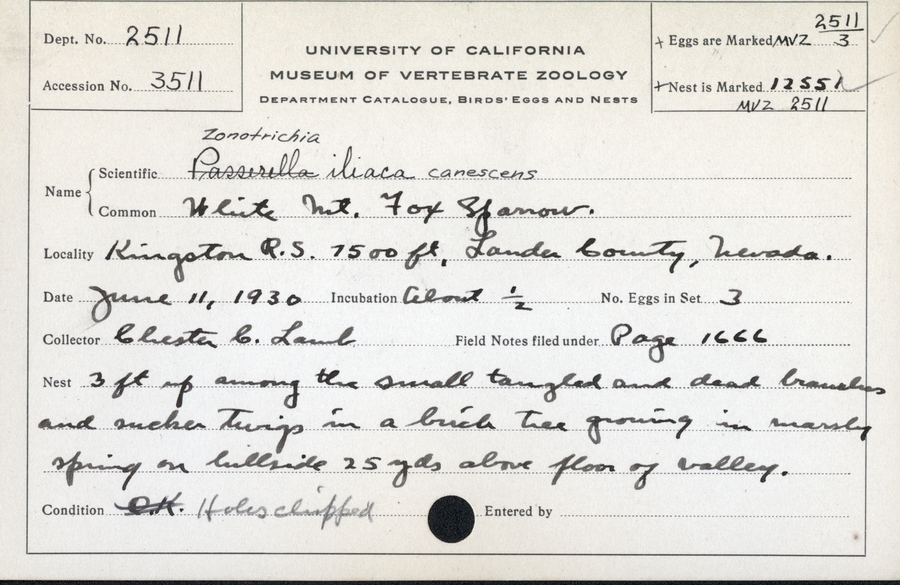 Dept. No. 2511
Accession No. 3511
UNIVERSITY OF CALIFORNIA
MUSEUM OF VERTEBRATE ZOOLOGY
DEPARTMENT CATALOGUE, BIRDS' EGGS AND NESTS
+ Eggs are Marked MVZ 2511/3
+ Nest is Marked 12551
MVZ 2511
Zonotrichia
Name { Scientific Passerella iliaca canescens
Common White Mt. Fox Sparrow.
Locality Kingston R.S. 7500 ft, Lander County, Nevada.
Date June 11, 1930 Incubation About ½ No. Eggs in Set 3
Collector Chester C. Lamb Field Notes filed under Page 1666
Nest 3 ft up among the small tangled and dead branches
and sucker twigs in a birch tree growing in marshy
spring on hillside 25 yds above floor of valley.
Condition O.K. Holes chipped Entered by